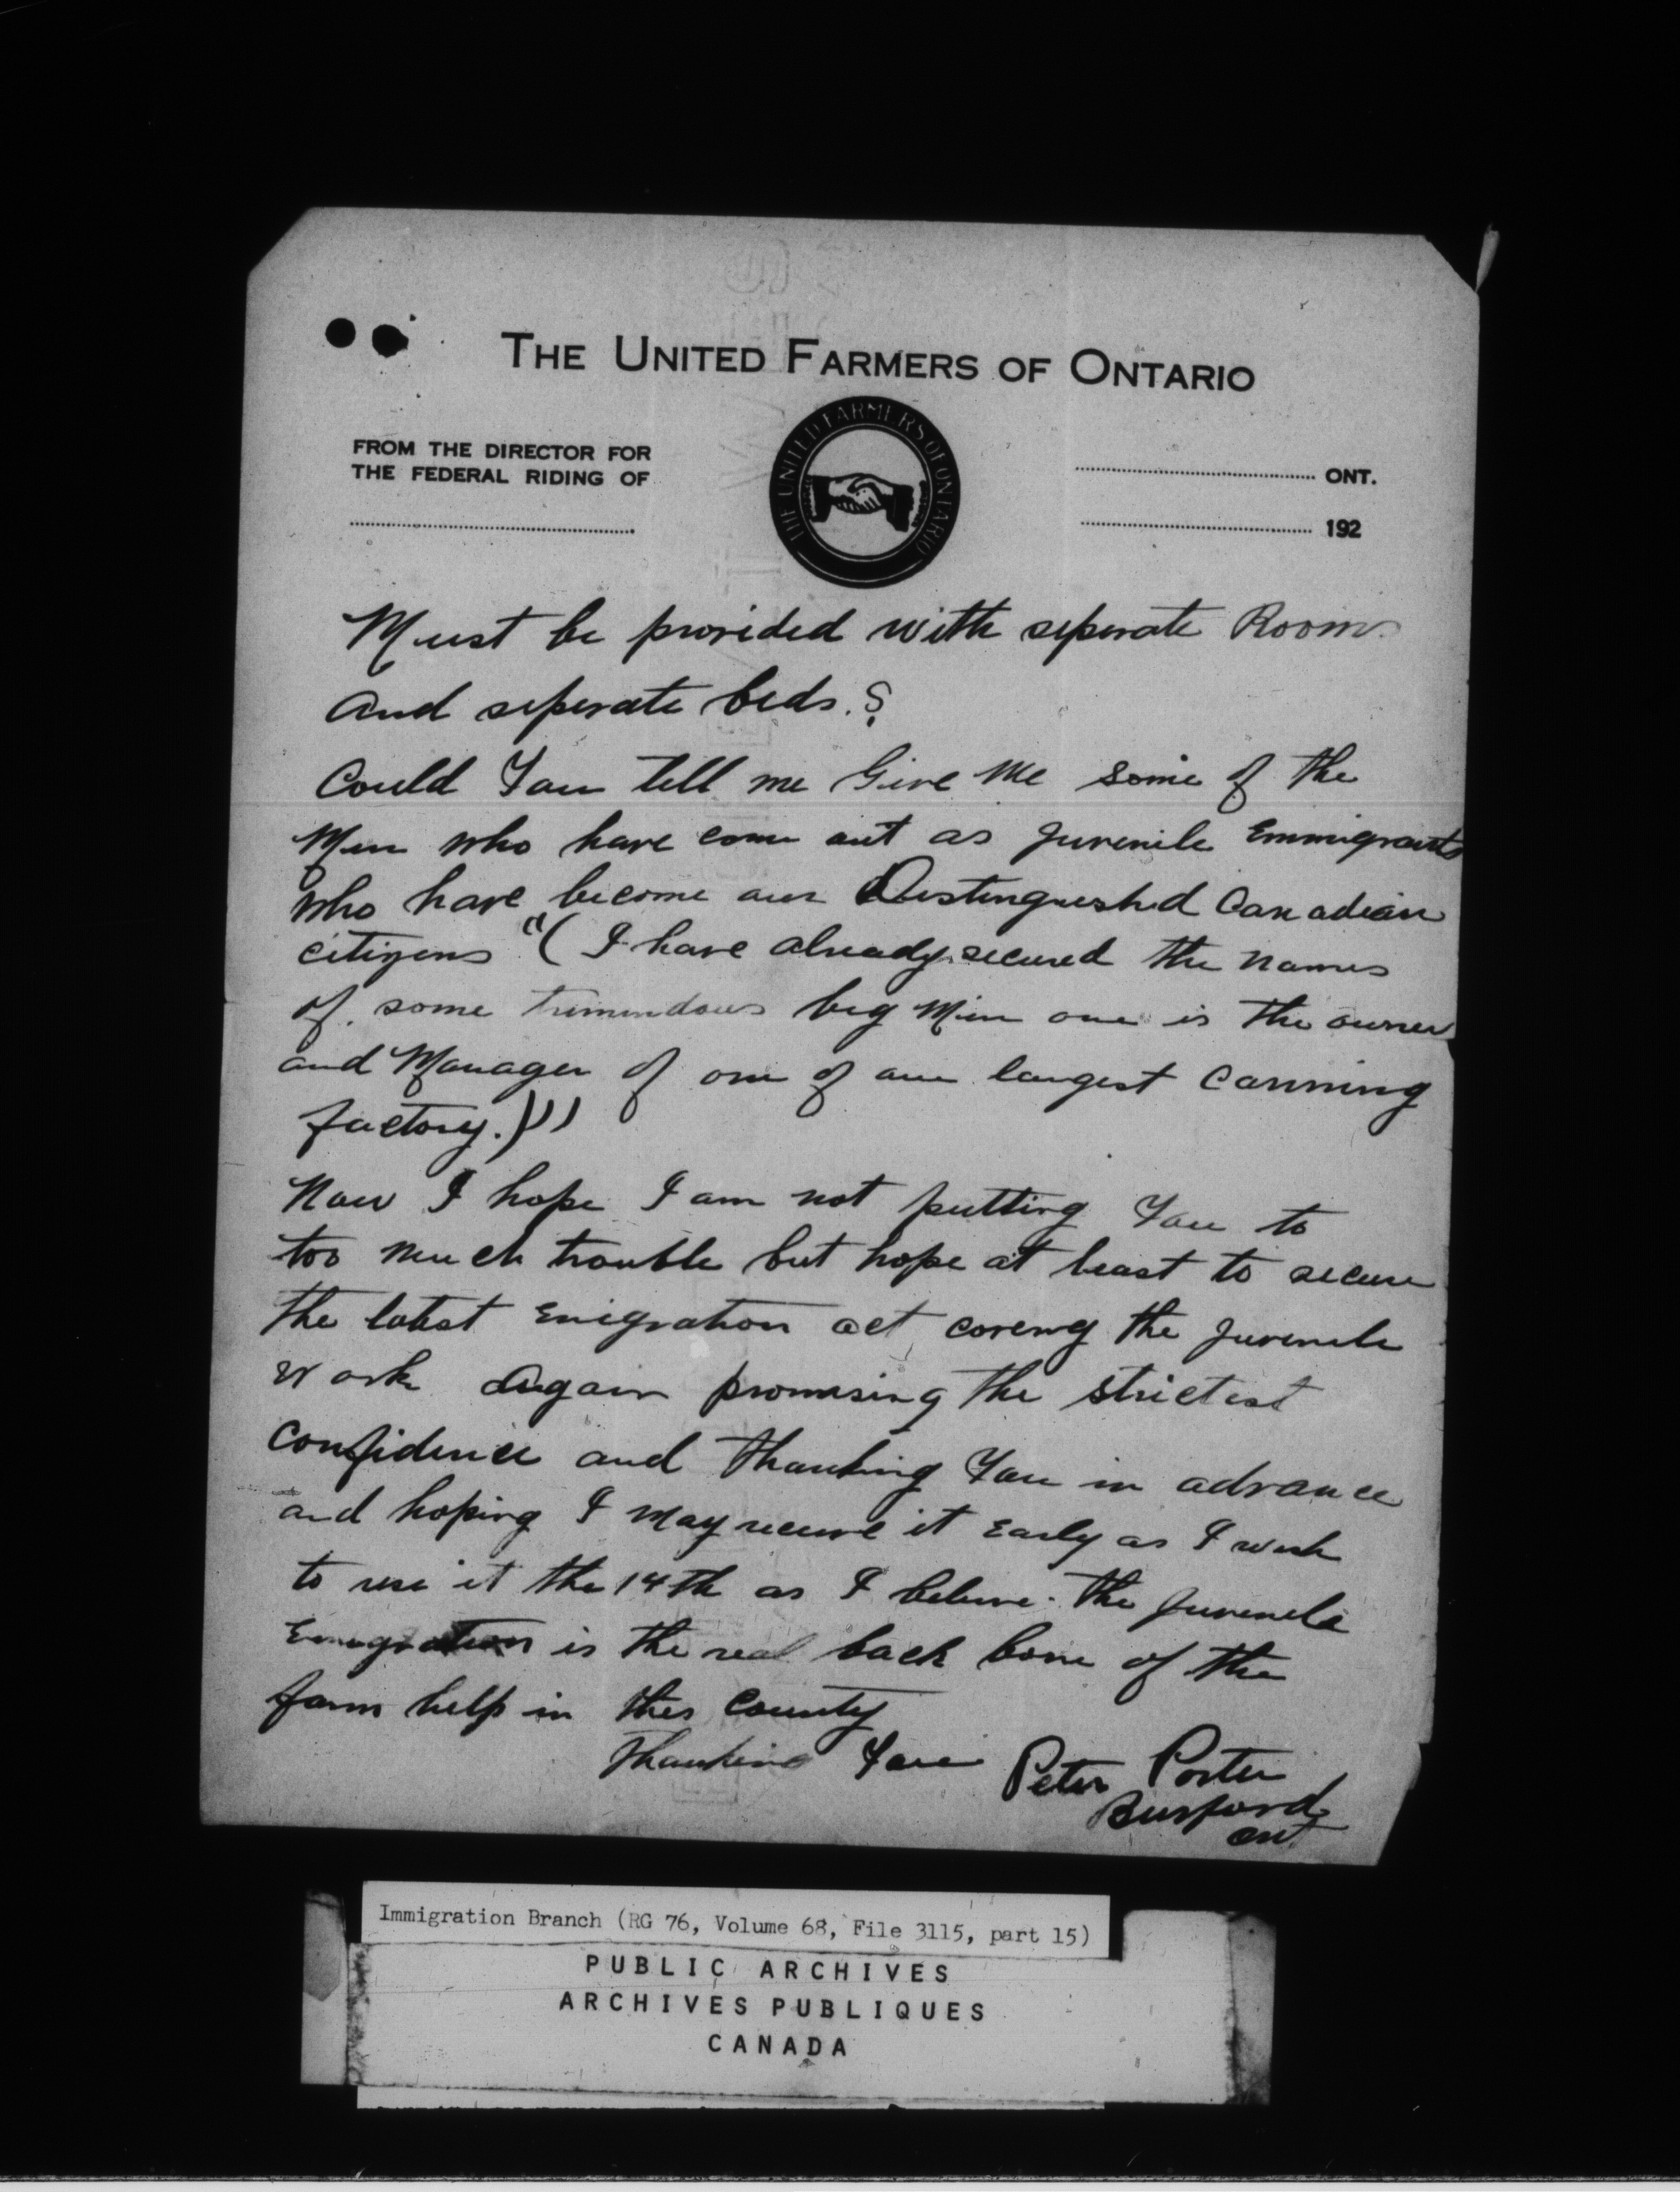 THE UNITED FARMERS OF ONTARIO
FROM THE DIRECTOR FOR
THE FEDERAL RIDING OF
THE UNITED FARMERS OF ONTARIO
ONT.
192
Must be provided with seperate Rooms
and seperate beds.?
Could You tell me Give Me some of the
Men who have come out as Juvenile Emmigrants
who have become our Distinguished Canadian
citizens "( I have already secured the names
of some tremendous big Men one is the owner
and Manager of one of our largest Canning
factory.)))
Now I hope I am not putting You to
too much trouble but hope at least to secure
the latest Emigration act covering the Juvenile
Work Again promising the strictest
Confidence and Thanking You in advance
and hoping I may receive it Early as I wish
to use it the 14th as I believe the Juvenile
Emigration is the real back bone of the
farm help in this County
Thanking You Peter Porter
Burford
Ont
Immigration Branch (RG 76, Volume 68, File 3115, part 15)
PUBLIC ARCHIVES
ARCHIVES PUBLIQUES
CANADA